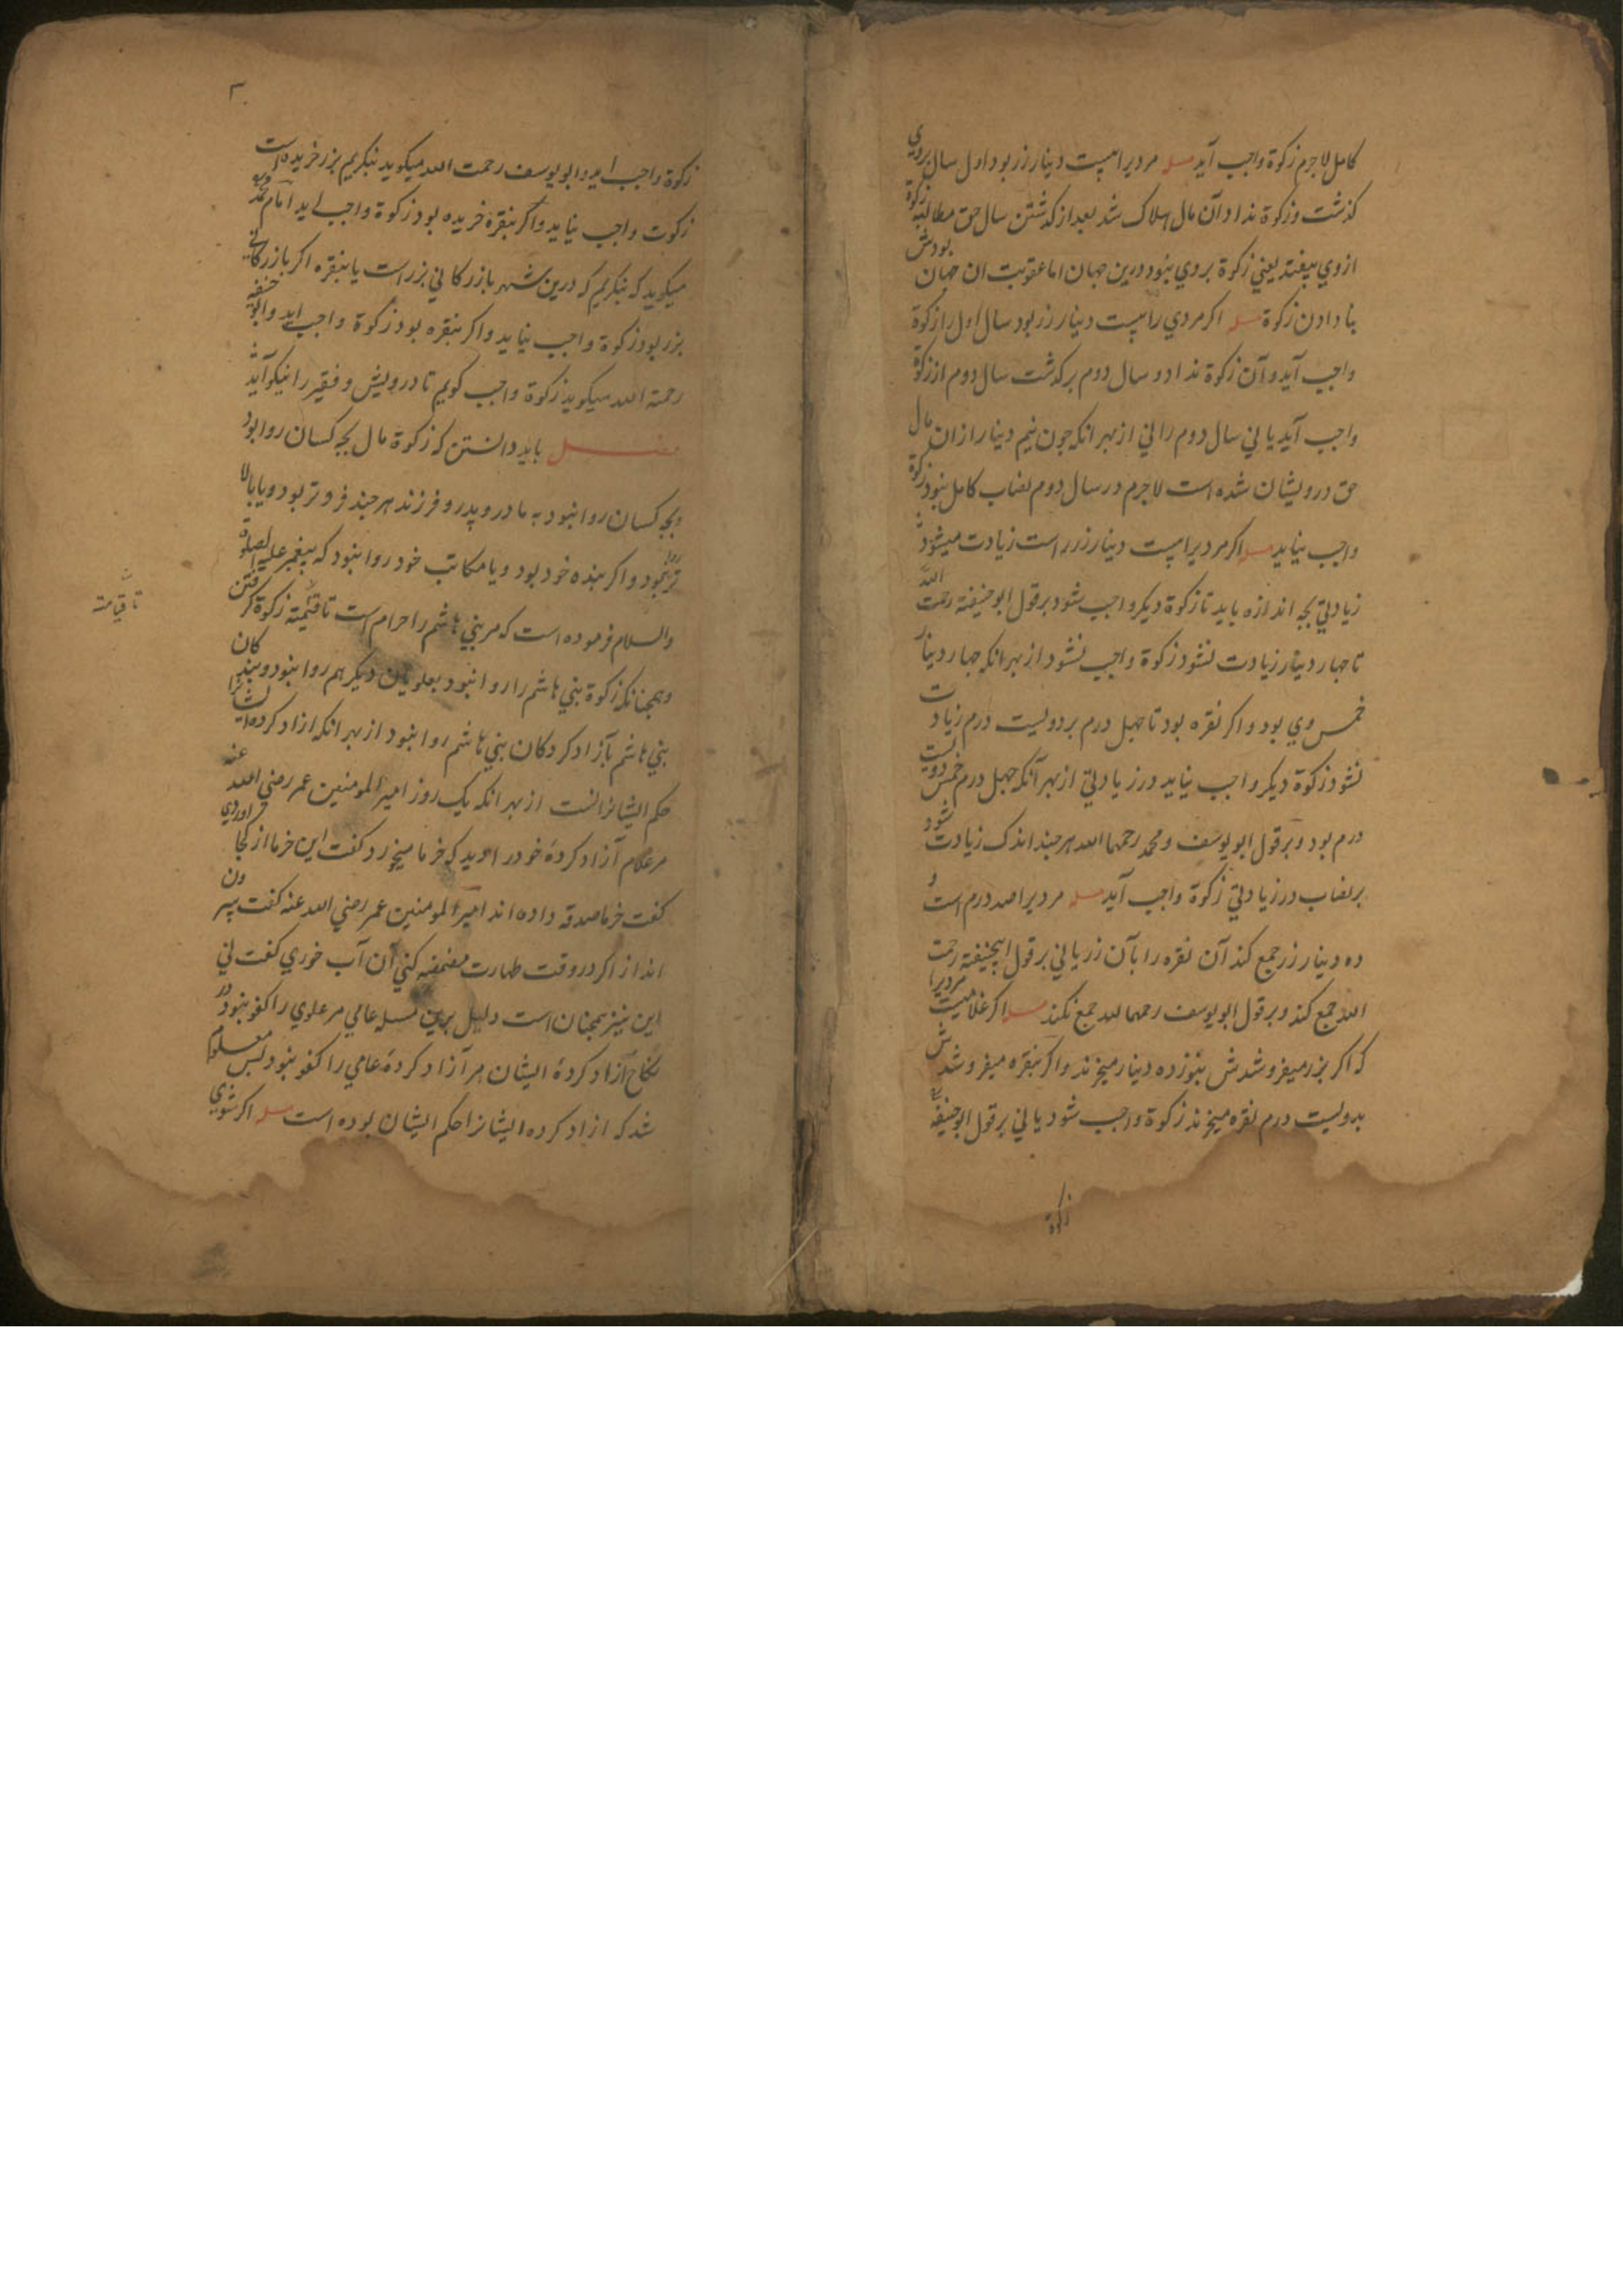 کامل لاجرم زکوة واجب آید مسله مردیرا بیست دینار زر بود اول سال بروی
کذشت و زکوة نداد آن مال هلاک شد بعد از کذشتن سال حق مطالبه زکوة
ازوی بیفتد یعنی زکوة بروی نبود درین جهان اما عقوبت ان جهان بودش
بنا دادن زکوة مسله اکر مردی را بیست دینار زر بود سال اول را زکوة
واجب آید و آن زکوة نداد و سال دوم برکذشت سال دوم از زکوة
واجب آید یا نی سال دوم را نی از بهر انکه چون نیم دینار ازان مال
حق درویشان شده است لاجرم در سال دوم نصاب کامل نبود زکوة
واجب نیاید مسله اکر مردیرا بیست دینار زر است زیادت میشود
زیادتی بچه اندازه باید تا زکوة دیکر واجب شود بر قول ابوحنیفته رحمت الله
تا چهار دینار زیادت نشود زکوة واجب نشود از بهر انکه چهار دینار
خمس وی بود و اکر نقره بود تا چهل درم بر دویست درم زیادت
نشود زکوة دیکر واجب نیاید در زیادتی از بهر آنکه چهل درم خمس دویست
درم بود و بر قول ابو یوسف و محمد رحمهما الله هر چند اندک زیادت شود
بر نصاب در زیادتی زکوة واجب آید مسله مردیرا صد درم است و
ده دینار زر جمع کند آن نقره را بآن زر یا نی بر قول ابیحنیفته رحمت
الله جمع کند و بر قول ابو یوسف رحمهما لله جمع نکند مسله اکر غلامیست مردیرا
که اکر بزر میفروشدش بنوزده دینار میخرند و اکر بنقره میفروشدش
بدویست درم نقره میخرند زکوة واجب شود یا نی بر قول ابوحنیفه
زکوة
۳
زکوة واجب اید و ابو یوسف رحمت الله میکوید بنکریم بزر خریده است
زکوت واجب نیاید و اکر بنقره خریده بود زکوة واجب اید امام محمد
میکوید که بنکریم که درین شهر بازرکانی بزر است یا بنقره اکر بازرکانی
بزر بود زکوة واجب نیاید و اکر بنقره بود زکوة واجب اید و ابو حنیفه
رحمته الله میکوید زکوة واجب کویم تا درویش و فقیر را نیکو آید
فصل باید دانستن که زکوة مال بچه کسان روا بود
و بچه کسان روا نبود به مادر و پدر و فرزند هر چند فروتر بود و یا بالا
تر روا نبود و اکر بنده خود بود و یا مکاتب خود روا نبود که پیغمبر علیه الصلوة
والسلام فرموده است که مر بنی هاشم را حرام است تا قیمته زکوة کرفتن
تا قیامته
و همچنانکه زکوة بنی هاشم را روا نبود بعلویان دیکر هم روا نبود و بنده کان
بنی هاشم بآزاد کردکان بنی هاشم روا نبود از بهر انکه ازاد کرده ایشانرا
حکم ایشانراست از بهر انکه یک روز امیرالمومنین عمر رضی الله عنه
مر غلام آزاد کردهٔ خود را دید که خرما میخورد کفت این خرما از کجا اوردی
کفت خرما صدقه داده اند امیرالمومنین عمر رضی الله عنه کفت بیرون
انداز اکر در وقت طهارت مضمضه کنی آن آب خوری کفت نی
این نیز همچنان است دلیل برین مسله عامی مر علوی را کفو نبود در
نکاح آزاد کردهٔ ایشان مر آزاد کردهٔ عامی را کفو نبود پس معلوم
شد که ازاد کرده ایشانرا حکم ایشان بوده است مسله اکر شوی